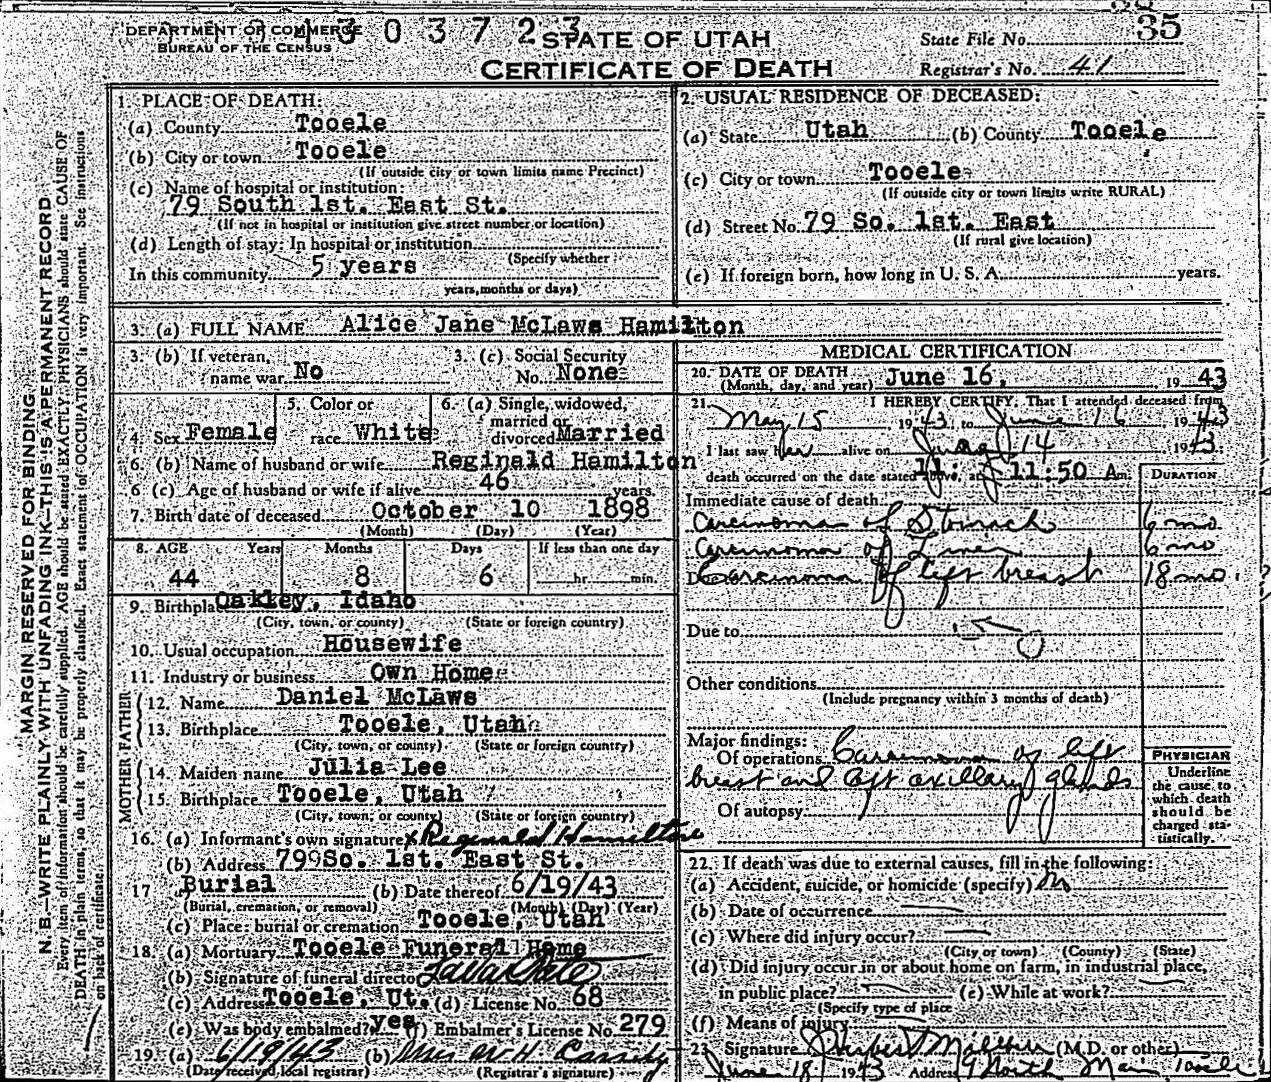 DEPARTMENT OF COMMERCE
BUREAU OF THE CENSUS
3 0 3 7 2 3
STATE OF UTAH
CERTIFICATE OF DEATH
State File No. 35
Registrar's No. 41
MARGIN RESERVED FOR BINDING
N. B.—WRITE PLAINLY WITH UNFADING INK—THIS IS A PERMANENT RECORD
Every item of information should be carefully supplied. AGE should be stated EXACTLY. PHYSICIANS should state CAUSE OF
DEATH in plain terms, so that it may be properly classified. Exact statement of OCCUPATION is very important. See instructions
on back of certificate.
1. PLACE OF DEATH:
(a) County Tooele
(b) City or town Tooele
(If outside city or town limits name Precinct)
(c) Name of hospital or institution:
79 South 1st. East St.
(If not in hospital or institution give street number or location)
(d) Length of stay: In hospital or institution
(Specify whether
In this community 5 years
years, months or days)
2. USUAL RESIDENCE OF DECEASED:
(a) State Utah (b) County Tooele
(c) City or town Tooele
(If outside city or town limits write RURAL)
(d) Street No. 79 So. 1st. East
(If rural give location)
(e) If foreign born, how long in U. S. A. years.
3. (a) FULL NAME Alice Jane McLaws Hamilton
3. (b) If veteran, name war No
3. (c) Social Security No. None
4. Sex Female
5. Color or race White
6. (a) Single, widowed, married or divorced Married
6. (b) Name of husband or wife Reginald Hamilton
6 (c) Age of husband or wife if alive 46 years.
7. Birth date of deceased October 10 1898
(Month) (Day) (Year)
8. AGE Years Months Days If less than one day
44 8 6 hr. min.
9. Birthplace Oakley, Idaho
(City, town, or county) (State or foreign country)
10. Usual occupation Housewife
11. Industry or business Own Home
FATHER
12. Name Daniel McLaws
13. Birthplace Tooele, Utah
(City, town, or county) (State or foreign country)
MOTHER
14. Maiden name Julia Lee
15. Birthplace Tooele, Utah
(City, town, or county) (State or foreign country)
16. (a) Informant's own signature x Reginald Hamilton
(b) Address 79 So. 1st. East St.
17 Burial (b) Date thereof 6/19/43
(Burial, cremation, or removal) (Month) (Day) (Year)
(c) Place: burial or cremation Tooele, Utah
18. (a) Mortuary Tooele Funeral Home
(b) Signature of funeral director
(c) Address Tooele, Ut. (d) License No. 68
(e) Was body embalmed? yes (f) Embalmer's License No. 279
19. (a) 6/19/43 (b) Mrs W H Cassity
(Date received local registrar) (Registrar's signature)
MEDICAL CERTIFICATION
20. DATE OF DEATH
(Month, day, and year) June 16, 1943
21. I HEREBY CERTIFY, That I attended deceased from
May 15, 1943, to June 16 1943
I last saw her alive on June 14 1943
death occurred on the date stated above, at 11: 11:50 Am. DURATION
Immediate cause of death
Carcinoma of Stomach 6 mo
Carcinoma of Liver 6 mo
Carcinoma of left breast 18 mo.
Due to
Other conditions
(Include pregnancy within 3 months of death)
Major findings:
Of operations Carcinoma of left
breast and left axillary glands
Of autopsy
PHYSICIAN
Underline
the cause to
which death
should be
charged sta-
tistically.
22. If death was due to external causes, fill in the following:
(a) Accident, suicide, or homicide (specify) No
(b) Date of occurrence
(c) Where did injury occur?
(City or town) (County) (State)
(d) Did injury occur in or about home on farm, in industrial place,
in public place? (e) While at work?
(Specify type of place
(f) Means of injury
23 Signature (M.D. or other)
June 18 1943 Address North Main Tooele